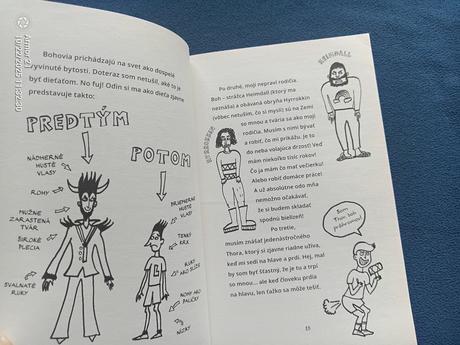 Bohovia prichádzajú na svet ako dospelé
vyvinuté bytosti. Doteraz som netušil, aké to je
byť dieťaťom. No fuj! Odin si ma ako dieťa zjavne
predstavuje takto:
PREDTÝM
NÁDHERNE
HUSTÉ
VLASY
ROHY
MUŽNE
ZARASTENÁ
TVÁR
ŠIROKÉ
PLECIA
SVALNATÉ
RUKY
POTOM
PRIEMERNE
HUSTÉ
VLASY
TENKÝ
KRK
RUKY
AKO SLÍŽE
NOHY AKO
PALIČKY
NÍZKY
Po druhé, moji nepraví rodičia.
Boh – strážca Heimdall (ktorý ma
neznáša) a obávaná obryňa Hyrrokkin
(vôbec netuším, čo si myslí) sú na Zemi
so mnou a tvária sa ako moji
rodičia. Musím s nimi bývať
a robiť, čo mi prikážu. Je to
do neba volajúca drzosť! Veď
mám niekoľko tisíc rokov!
Čo ja mám čo mať večierku!
Alebo robiť domáce práce!
A už absolútne odo mňa
nemožno očakávať,
že si budem skladať
spodnú bielizeň!
Po tretie,
musím znášať jedenásťročného
Thora, ktorý si zjavne riadne užíva,
keď mi sedí na hlave a prdí. Hej, mal
by som byť šťastný, že je tu a trpí
so mnou... ale keď človeku prdia
na hlavu, len ťažko sa môže tešiť.
HEIMDALL
HYRROKKIN
Som
Thor, boh
prdiacich
15